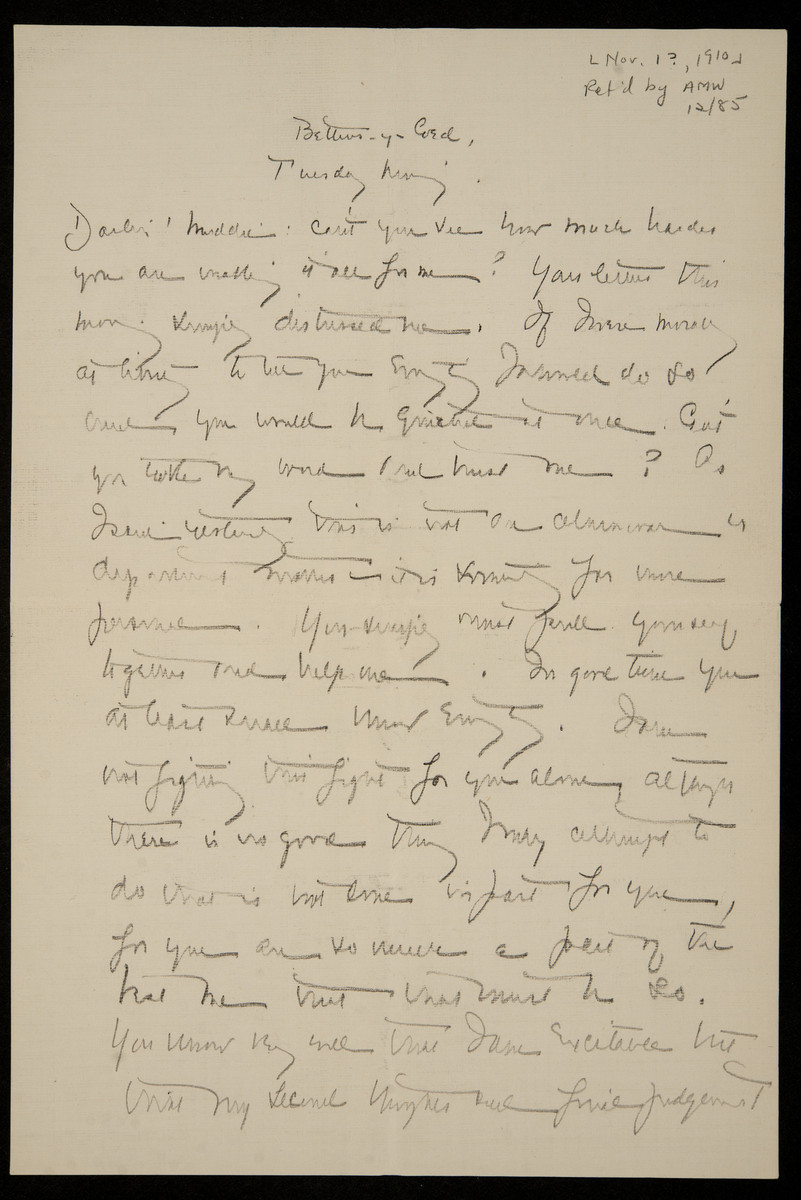 [Nov. 1?, 1910]
Ret'd by AMW
12/85
Bettws-y-Coed,
Tuesday
Darlin' Muddie: can't you see how much harder
you are making it all for me? Your letter this
morning simply distressed me. If I were morally
at liberty to tell you Everything I should do so
and you would be quieted at once. Can't
you take my word and trust me? As
I said yesterday this is not an
department it is for
. You simply must pull yourself
together and help me. In good time you
at least shall know Everything. I am
not fighting this fight for you alone, altho
there is no good thing I may attempt to
do that is not done in part for you,
for you are so much a part of the
best me that that must be so.
You know very well that I am Excitable but
that my second thoughts and final judgement